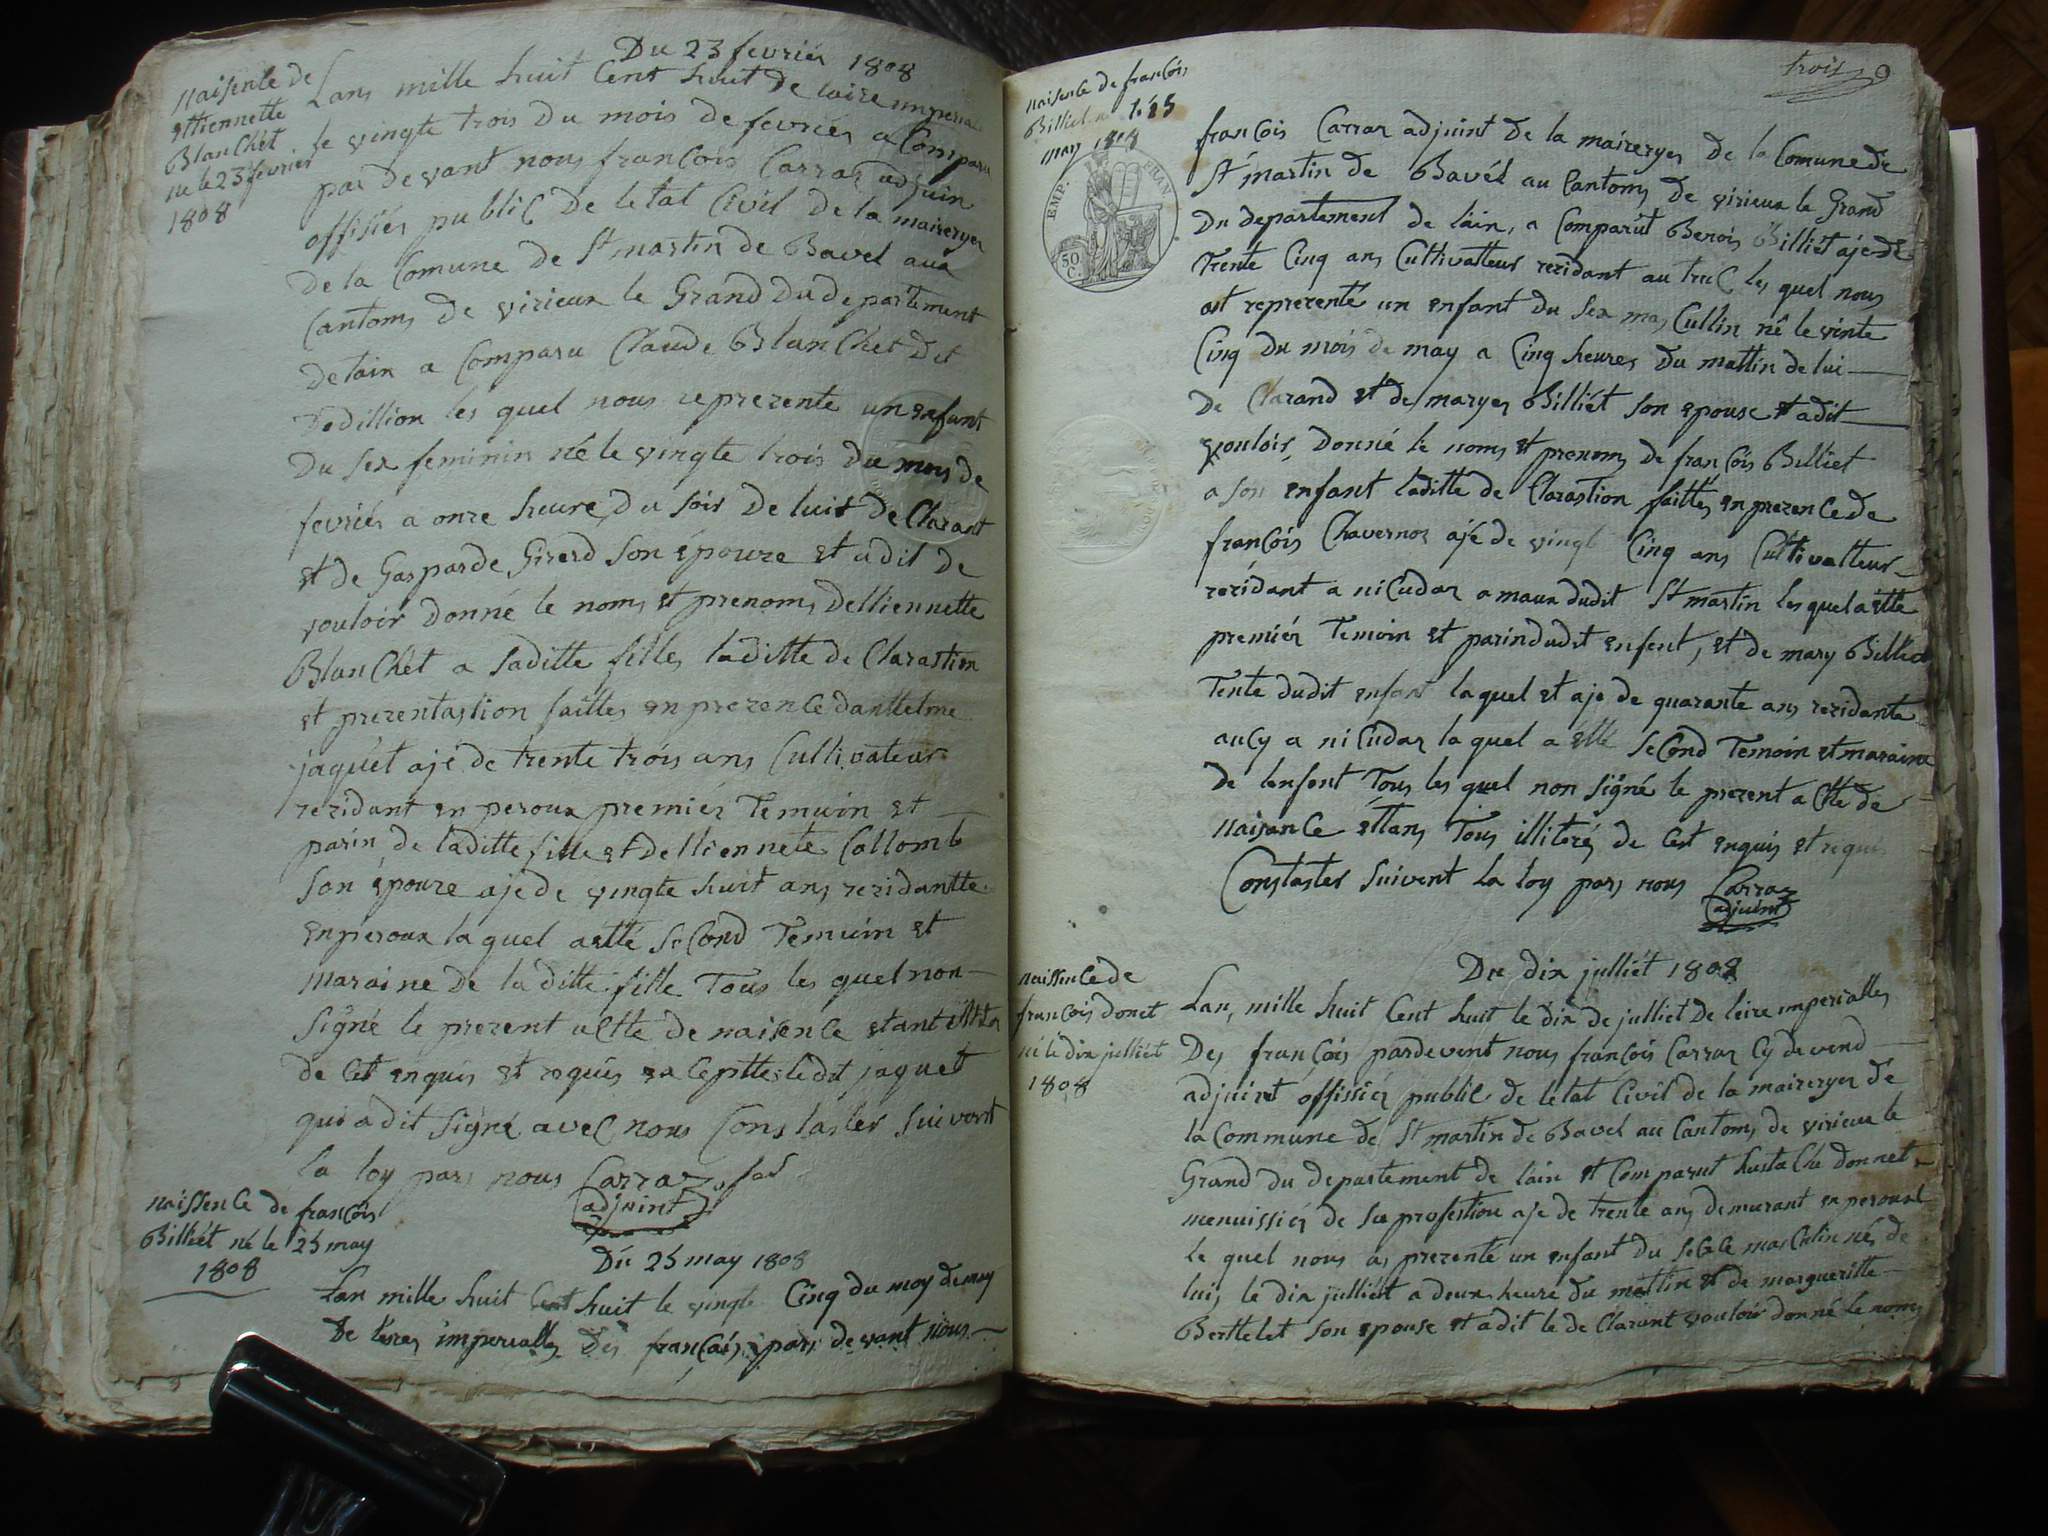 Du 23 fevrier 1808
naisente de
ettiennette
Blanchet
ne le 23 fevrier
1808
Lans mille huit Cent huit de laire imperia
le vingte trois du mois de fevrier a Comparu
par devant nous francois Carraz adjuin
offisier public de letat Civil de la maireryes
de la Comune de St martin de Bavel aux
Cantoms de virieux le Grand du departement
de lain a Comparu Claude Blanchet dit
les quel nous reprezente un enfant
du sex feminin né le vingte trois du mois de
fevrier a onze heures du soir de luis de Clarant
et de Gasparde Girerd son épouze et a dit de
vouloir donné le noms et prenoms dettiennette
Blanchet a saditte filles laditte de Clarastion
et prezentastion faittes en prezence danttelme
jaquet ajé de trente trois ans Cultivateur
rezidant en peroux premier Temuin et
parin de laditte fille et dettiennete Collomb
son épouze aje de vingte huit ans rezidantte
en peroux laquel a etté second Temuin et
maraine de laditte fille Tous les quel non
signé le prezent actte de naisence etant
de Cet enquis et requis exceptte ledit jaquet
qui a dit signé avec nous Constaster suivent
la loy pars nous Carraz
adjoint
naissence de francois
Billiét né le 25 may
1808
Du 25 may 1808
Lan mille huit Cent huit le vingte Cinq du moy de may
de leres imperialles des français pars devant nous
trois 9
naisence de francois
Billiet le 25
may 1808
EMP. FRAN.
50 C.
francois Carraz adjuint de la maireryes de la Comune de
St martin de Bavél au Cantoms de virieux le Grand
du departement de lain, a Comparut Benois Billiét aje de
trente Cinq ans Cultivatteur rezidant au truc les quel nous
at reprezenté un enfant du sex mas Cullin né le vinte
Cinq du mois de may a Cinq heures du mattin de lui
de Clarand et de maryes Billiét son epouse et a dit
vouloir, donné le noms et prenoms de francois Billiet
a son enfant laditte de Clarastion faittes en prezence de
francois Chavernoz ajé de vingt Cinq ans Culttivatteur
rezidant a nicudaz amaux dudit St martin lesquel a etté
premiér Temoin et parin dudit enfent, et de mary Billiet
Tente dudit enfant laquel et aje de quarante ans rezidante
aucy a nicudaz laquel a étté second Temoin et maraine
de lenfent Tous les quel non signé le prezent actte de
naisance éttans Tous illiterés de Cest enquis et requis
Constaster suivent la loy pars nous Carraz
adjuint
Du dix julliét 1808
naissence de
francois donet
né le dix julliét
1808
Lan, mille huit Cent huit le dix de julliet de leire imperialles
Des françois pardevent nous françois Carraz Cy devend
adjuint offissier public de letat Civil de la maireryes de
la Commune de St martin de Bavel au Cantoms de virieux le
Grand du departement de lain et Comparut hustache donnet
menuissier de sa profestion aje de trente ans demurant en peroux
le quel nous as prezente un enfant du sexe masculin né, de
lui, le dix julliét a deux heure du mattin et de margueritte
Berttelet son epouse et a dit le de Clarant vouloir donné le noms